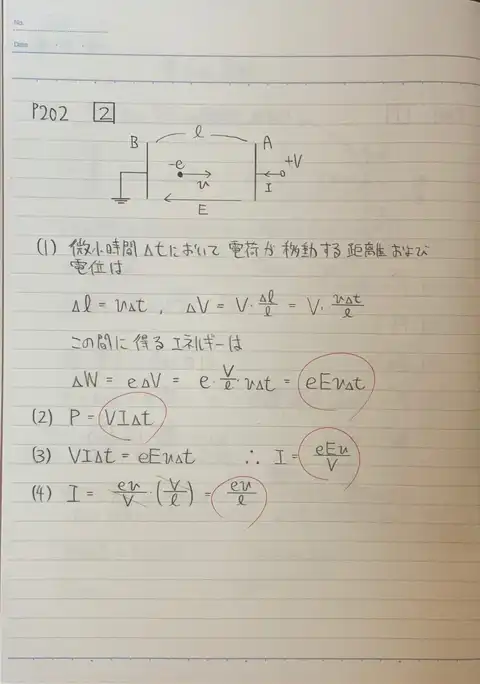 No.
Date
P202 2
B l A
-e +V
v I
E
(1) 微小時間Δtにおいて電荷が移動する距離および
電位は
Δl = vΔt , ΔV = V・Δl/l = V・vΔt/l
この間に得るエネルギーは
ΔW = eΔV = e・V/l・vΔt = eEvΔt
(2) P = VIΔt
(3) VIΔt = eEvΔt ∴ I = eEv/V
(4) I = ev/V・(V/l) = ev/l